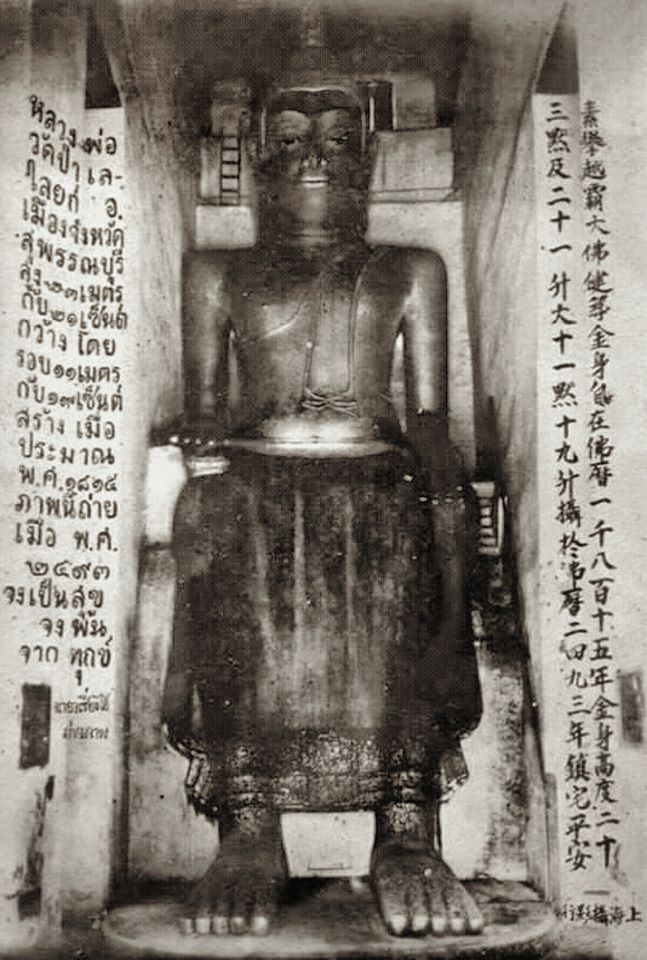 หลวงพ่อ
วัดป่าเล-
ไลยก์ อ.
เมืองจังหวัด
สุพรรณบุรี
สูง ๒๓ เมตร
กับ ๒๑ เซ็นต์
กว้าง โดย
รอบ ๑๑ เมตร
กับ ๑๙ เซ็นต์
สร้าง เมื่อ
ประมาณ
พ.ศ. ๑๘๑๕
ภาพนี้ถ่าย
เมื่อ พ.ศ.
๒๔๙๓
จงเป็นสุข
จง พ้น
จาก ทุกข์
素攀越霸大佛健築金身自在佛曆一千八百十五年金身高度二十
三點及二十一廾大十一點十九廾攝於佛曆二四九三年鎮宅平安
上海攝影行